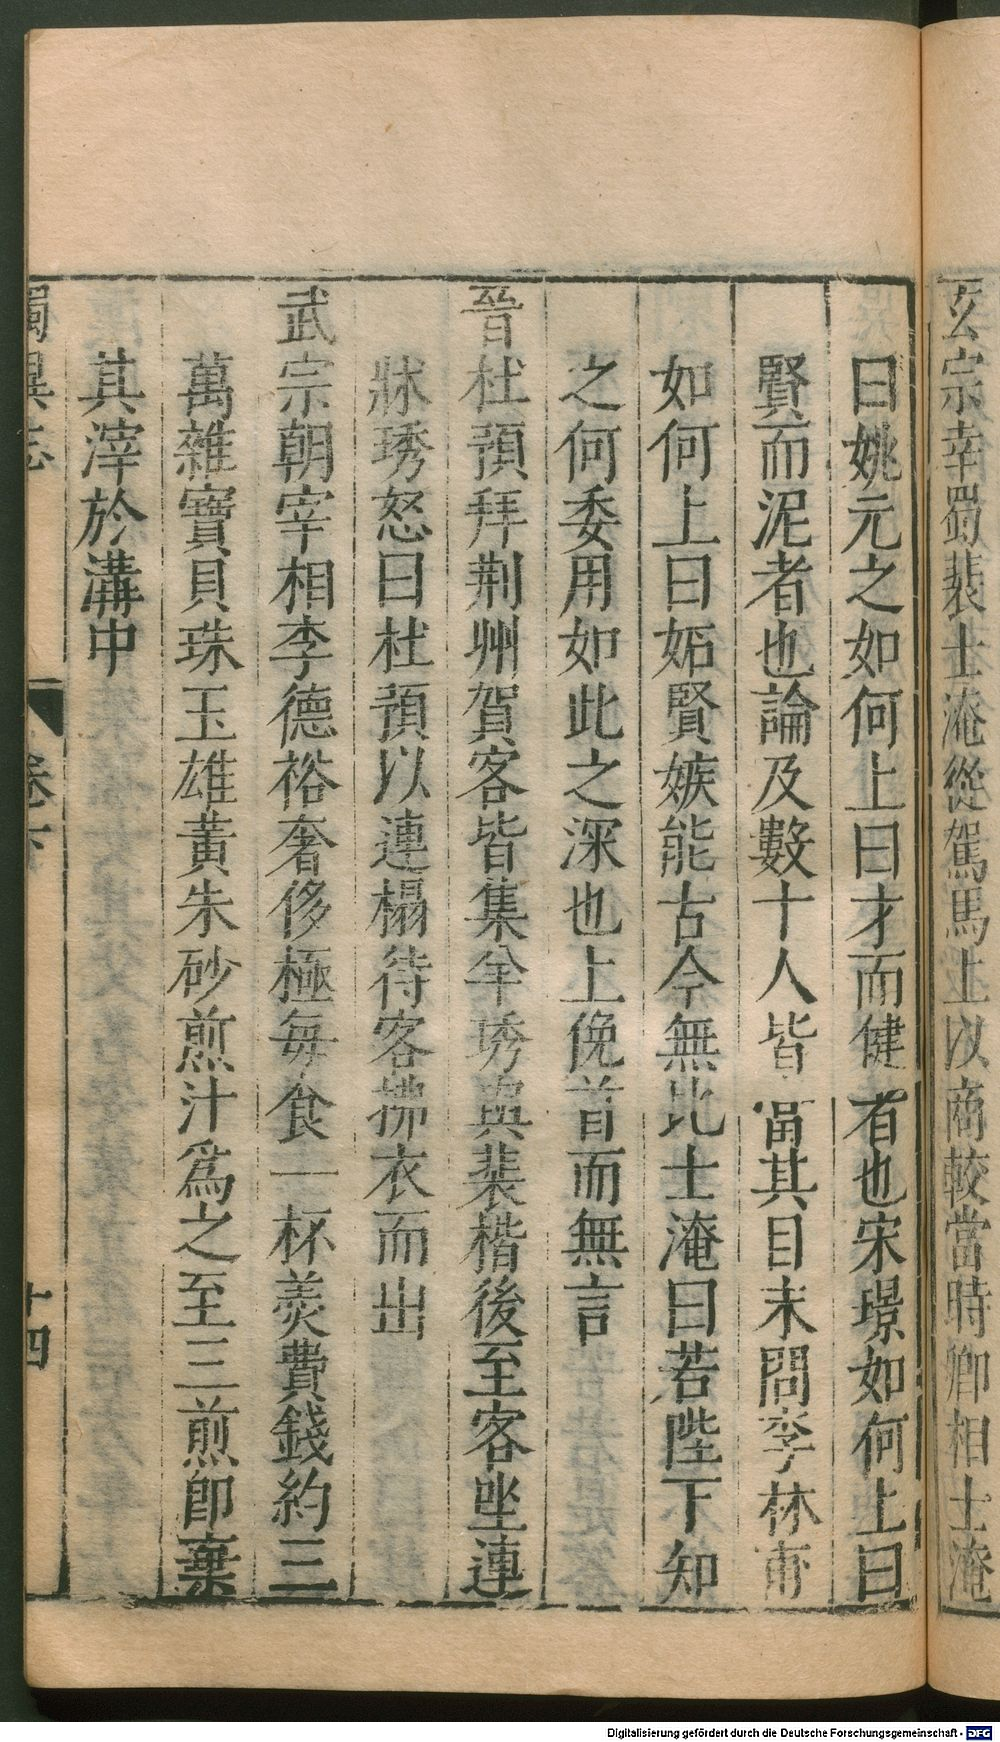 玄宗幸蜀裴士淹從駕馬上以商較當時卿相士淹
曰姚元之如何上曰才而健者也宋璟如何上曰
賢而泥者也論及數十人皆當其目末問李林甫
如何上曰妬賢嫉能古今無比士淹曰若陛下知
之何委用如此之深也上俛首而無言
晉杜預拜荆州賀客皆集羊琇與裴楷後至客坐連
牀琇怒曰杜預以連榻待客拂衣而出
武宗朝宰相李德裕奢侈極每食一杯羹費錢約三
萬雜寶貝珠玉雄黃朱砂煎汁爲之至三煎卽棄
其滓於溝中
獨異志 卷下 十四
Digitalisierung gefördert durch die Deutsche Forschungsgemeinschaft - DFG